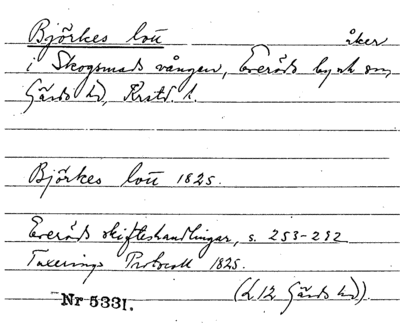 Björkes lott åker
i Skogsmads vången, Everöds by och sn,
Gärds hd, Krstd. l.
Björkes lott 1825.
Everöds skifteshandlingar, s. 253-292
Taxerings Protocoll 1825.
(L 12 Gärds hd).
Nr 5331.